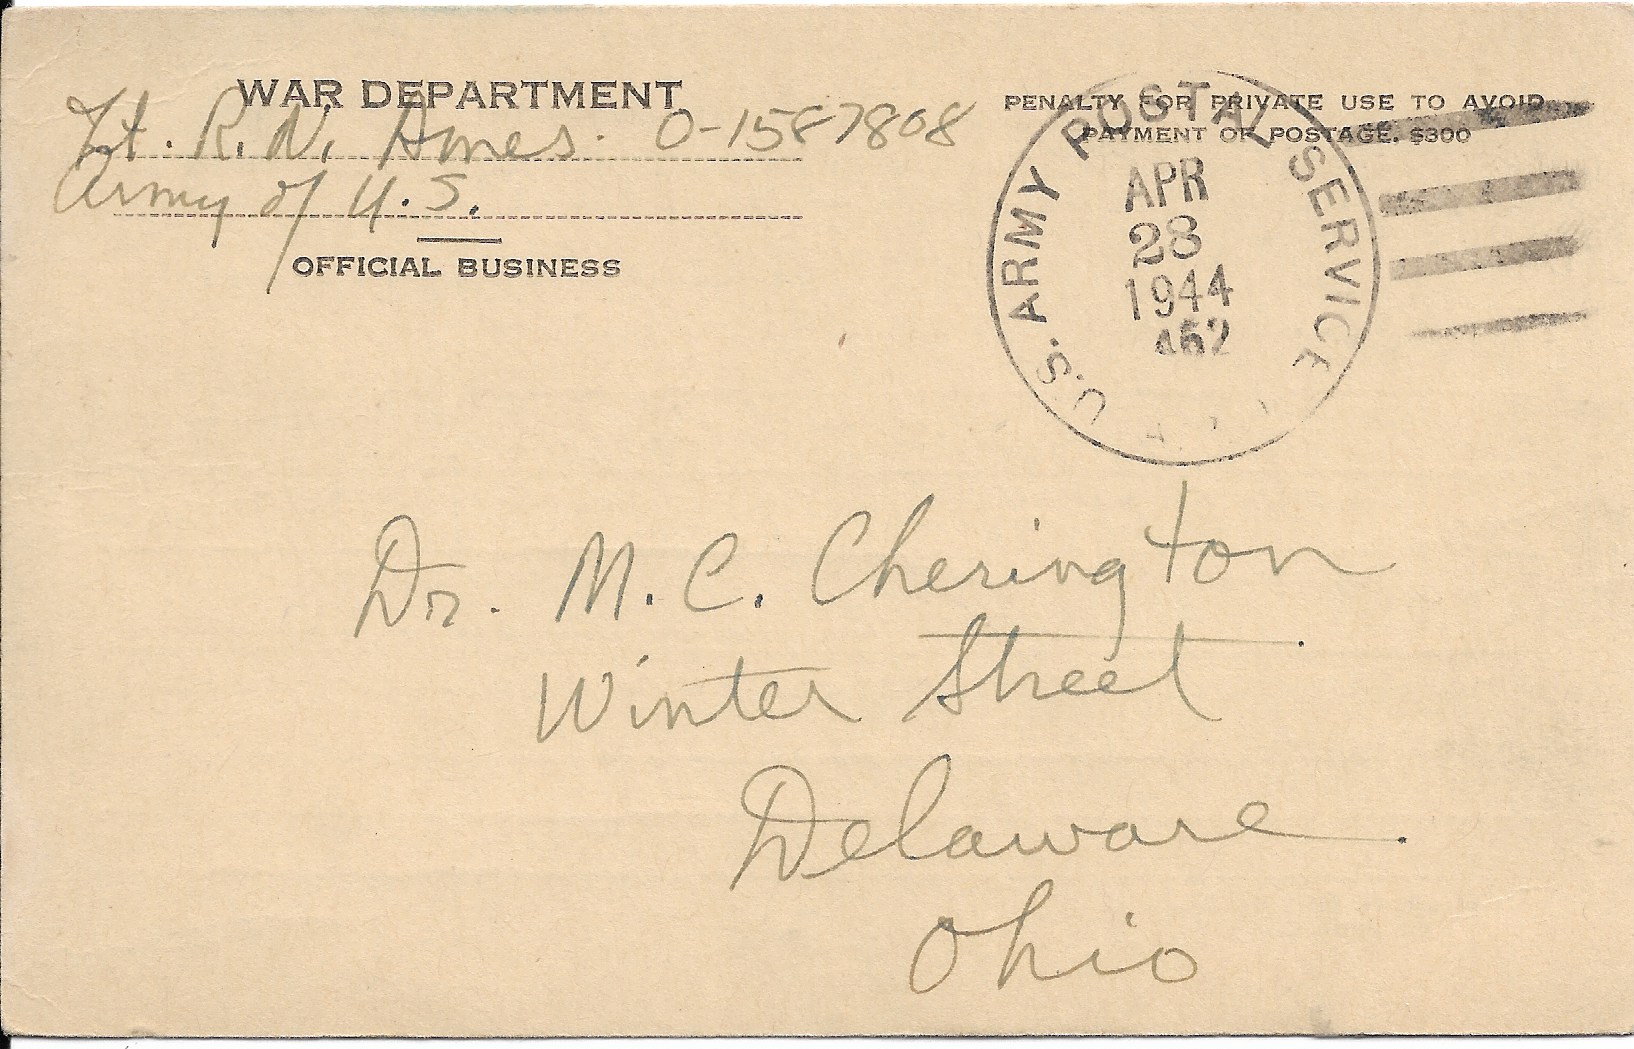 WAR DEPARTMENT
Lt. R. N. Ames. O-1587808
Army of U.S.
OFFICIAL BUSINESS
PENALTY FOR PRIVATE USE TO AVOID
PAYMENT OF POSTAGE, $300
U.S. ARMY POSTAL SERVICE
APR
28
1944
452
Dr. M. C. Cherington
Winter Street
Delaware
Ohio